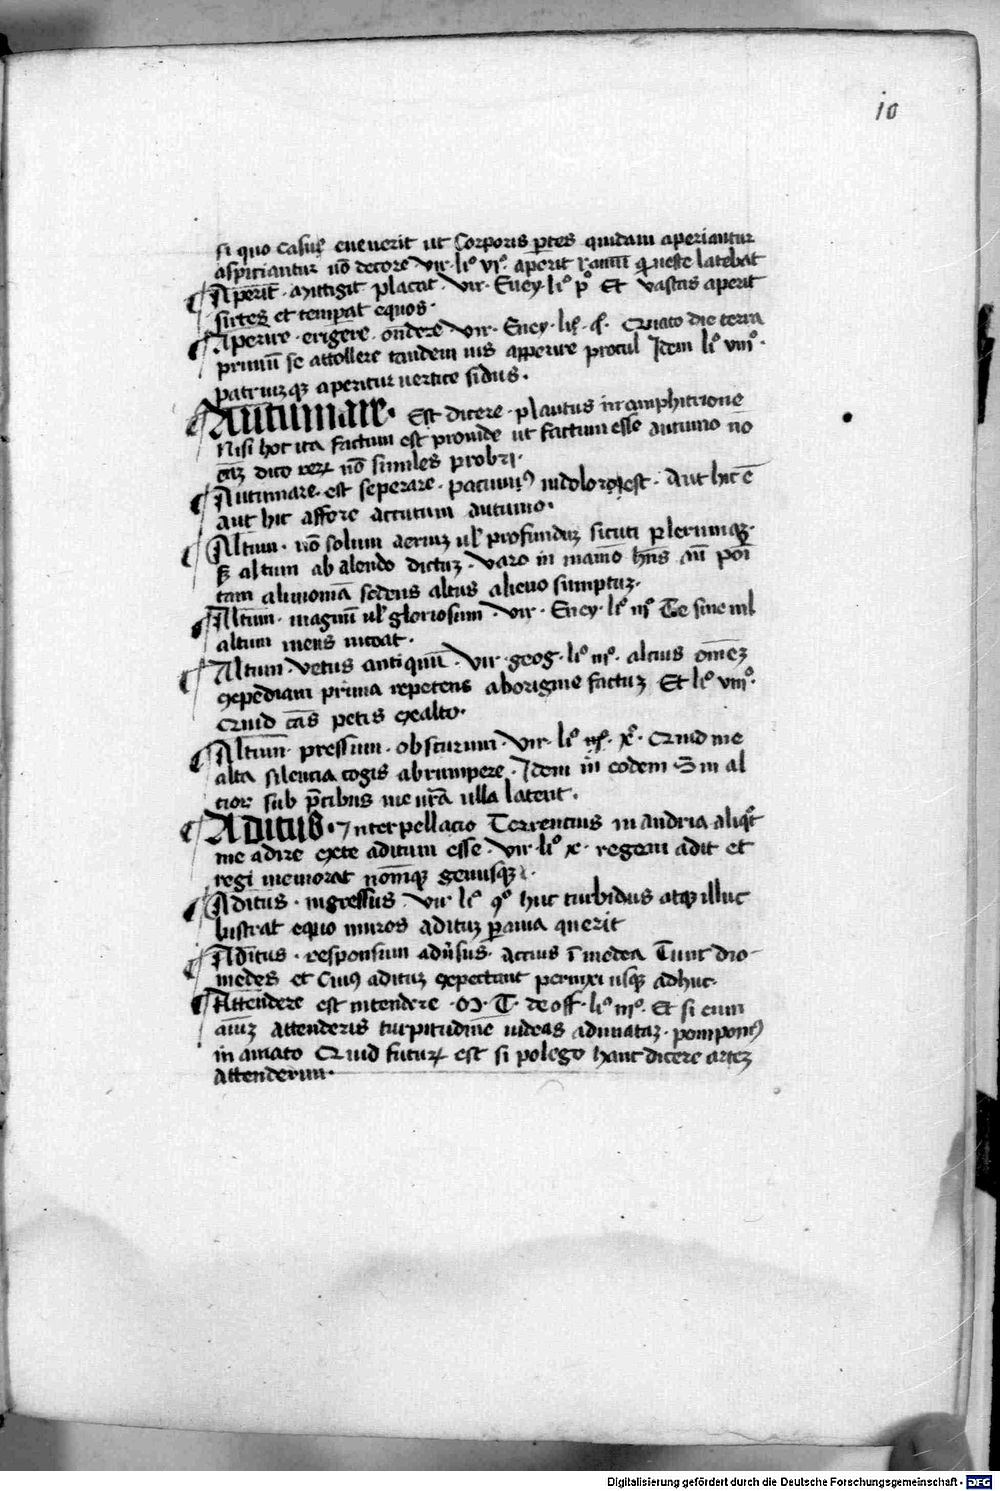 10
si quo casuꝫ eneuerit ut Corporis ꝑtes quidam aperiantur
aspiciantur nō decore vir· liº vjº· aperit ramū qͥ ueste latebat
¶ Aperit· mittigit placat· vir· Eney· liº pº Et vastas aperit
sirtes et temꝑat equos·
¶ Aperire· erigere· ondere vir· Eney· liº· Quarto die terra
primū se attollere tandem uis apperire procul Idem liº viiiº·
patriuꝫqꝫ aperitur uertice sidus·
¶ Autumare· Est dicere· plautus in amphitrione
Nisi hoc ita factum est proinde ut factum esse autumo nō
dico nō similes probri·
¶ Autumare· est seperare· pacuuiꝰ Aut hic ē
aut hic affore actutum autumo·
¶ Altum· nō solum aeriuꝫ ul' profunduꝫ sicuti plerumqꝫ·
altum ab alendo dictuꝫ· varo in
tam sedens altus alieno sumptuꝫ·
¶ Altum· magnū ul' gloriosum· vir· Eney· liº iijº Te sine nil
altum mens incoat·
¶ Altum· vetus antiquū· vir· geog· liº iiijº· altius omēꝫ
expediam prima repetens ab origine factuꝫ Et liº viijº·
Quid cās petis exalto·
¶ Altum· pressum· obscurum· vir· liº xº· Quid me
alta silencia cogis abrumpere· Idem in eodem in al
tior sub ꝑtibus ulla latent·
¶ Aditus· Interpellacio Terrencius in andria aliqͦt
me adire exte aditum esse· vir· liº x· regem adit et
regi memorat nomēqꝫ genusqꝫ·
¶ Aditus· ingressus vir· liº qº huc turbidus atqꝫ illuc
lustrat equo muros aditūꝫ ꝑ auia querit
¶ Aditus· responsum adūsus· accius ī medea Tunc dio-
medes et Cuiꝰ adituꝫ expectant usqꝫ adhuc·
¶ Attendere est intendere· M· T· de off· liº iijº· Et si eum
aīuꝫ attenderis turpitudinē uideas pomponꝰ
in Quid est si polego hanc dicere arteꝫ
attenderim·
Digitalisierung gefördert durch die Deutsche Forschungsgemeinschaft - DFG